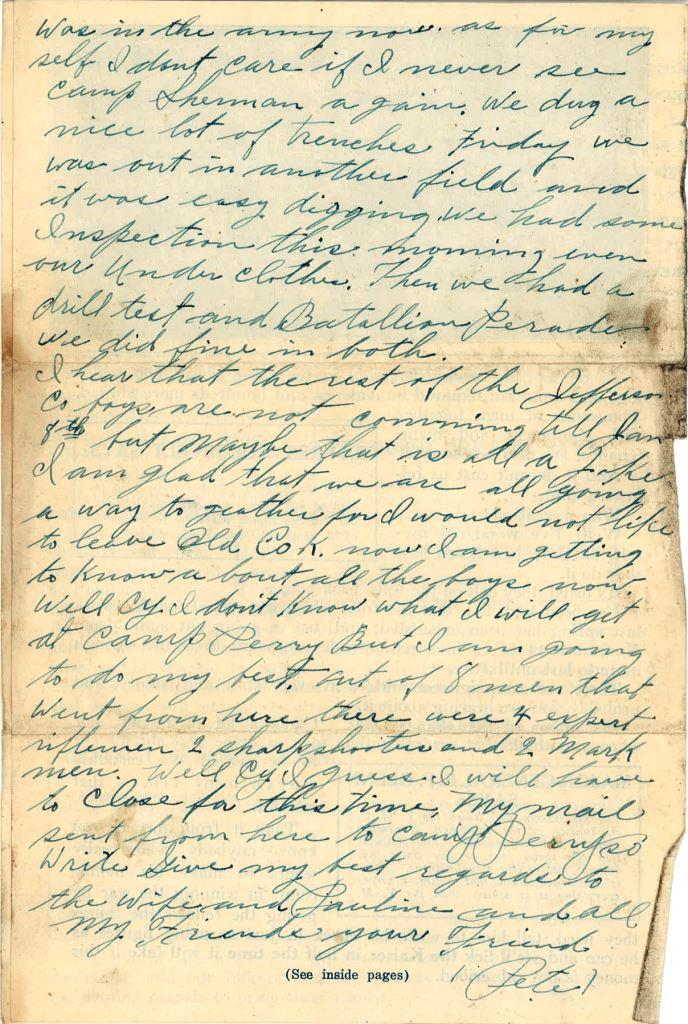 was in the army now. as for my
self I dont care if I never see
Camp Sherman a gain. We dug a
nice lot of trenches Friday we
was out in another field and
it was easy digging. We had some
Inspection this morning even
our Under clothes. Then we had a
drill test and Batallion Perade
we did fine in both.
I hear that the rest of the Jefferson
Co boys are not comming till Jan
8th but maybe that is all a joke
I am glad that we are all going
a way to geather for I would not like
to leave Old Co K. now I am getting
to Know a bout all the boys now.
Well Cy I don't Know what I will get
at Camp Perry But I am going
to do my best. out of 8 men that
went from here there were 4 expert
riflemen 2 sharpshooters and 2 Mark
men. Well Cy I guess I will have
to close for this time, My mail
sent from here to Camp Perry so
Write Give my best regards to
the Wife and Pauline and all
My Friends your Friend
Pete
(See inside pages)